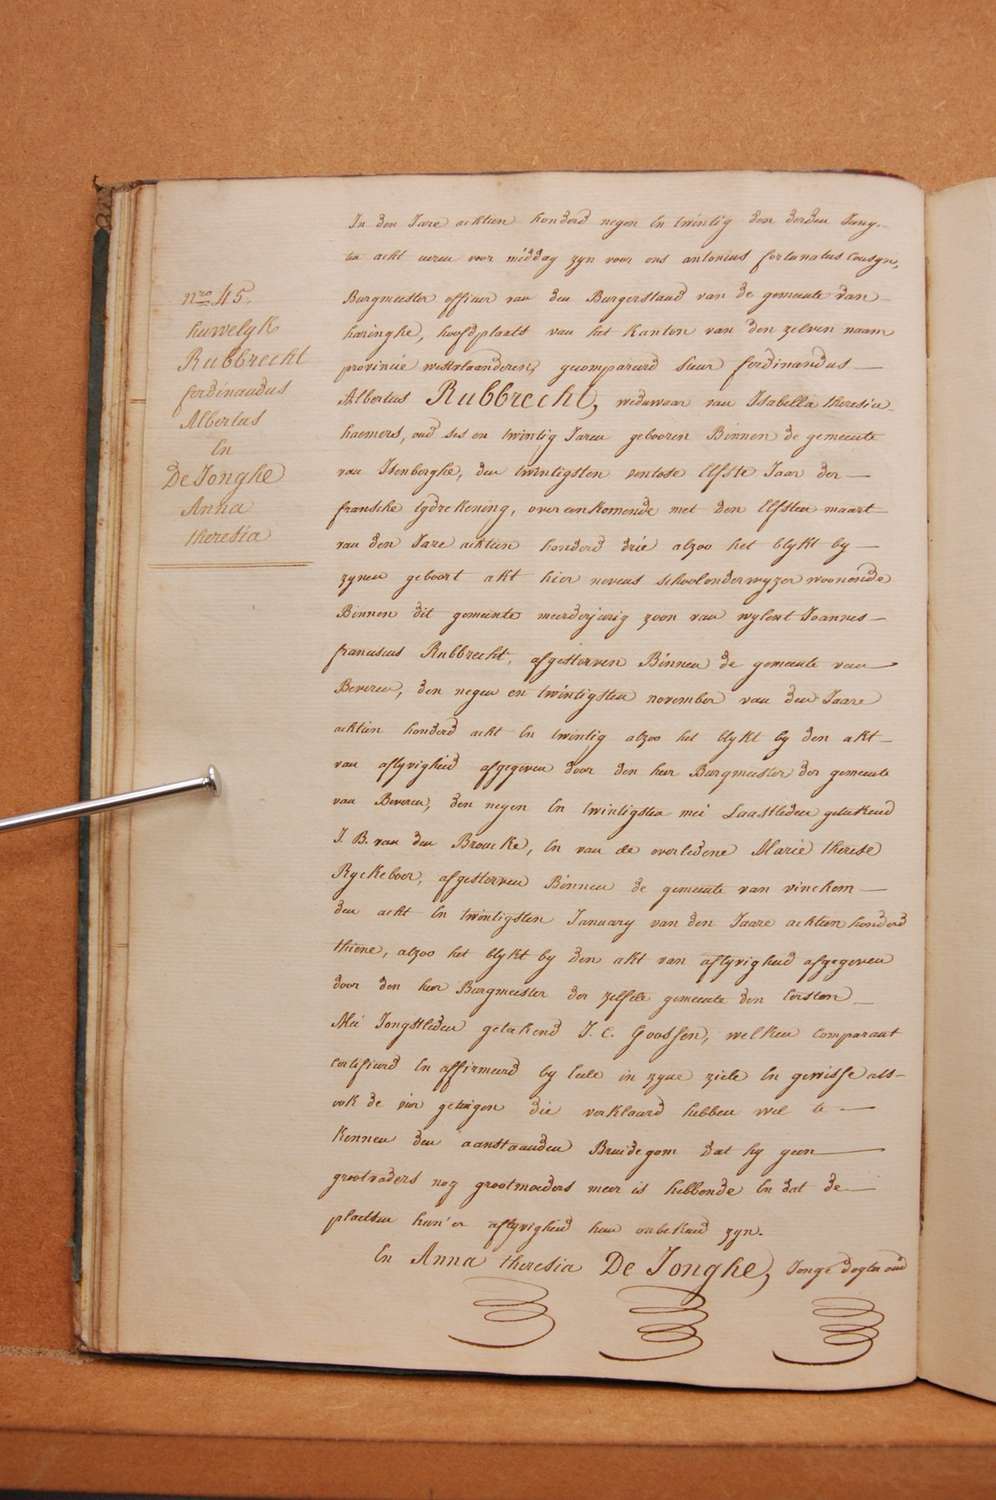 nro 45.
huwelyk
Rubbrecht
ferdinandus
Albertus
En
De Jonghe
Anna
theresia
In den Jare achtien honderd negen En twintig den derden Juny,
ten acht uren voor middag zyn voor ons antonius fortunatus Cousyn,
Burgmeester officier van den Burgerstand van de gemeente van
haringhe, hoofdplaets van het Kanton van den zelven naam
provincie westvlaanderen, gecompareerd Sieur ferdinandus
Albertus Rubbrecht, weduwaar van Isabella theresia
haemers, oud ses en twintig Jaren gebooren Binnen de gemeente
van Isenberghe, den twintigsten ventose Elfste Jaar der
fransche tydrekening, overeenkomende met den Elfsten maart
van den Jare achtien honderd drie alzoo het blykt by
zynen geboort akt hier nevens schoolonderwyzer woonende
Binnen dit gemeente meerderjarig zoon van wylent Joannes
franciscus Rubbrecht, afgestorven Binnen de gemeente van
Beveren, den negen en twintigsten november van den Jaare
achtien honderd acht En twintig alzoo het blykt by den akt
van aflyvigheid afgegeven door den heer Burgmeester der gemeente
van Beveren, den negen En twintigsten mei Laastleden geteekend
J. B. van den Broucke, En van de overledene Marie therese
Ryckeboer, afgestorven Binnen de gemeente van vinckem
den acht En twintigsten January van den Jaare achtien honderd
thiene, alzoo het blykt by den akt van aflyvigheid afgegeven
door den heer Burgmeester der zelfde gemeente den Eersten
Mei Jongstleden geteekend J. C. Goossen, welken comparant
certifieerd En affirmeerd by Eede in zyne ziele En gewisse als-
ook de vier getuigen die verklaard hebben wel te
Kennen den aanstaanden Bruidegom dat hy geen
grootvaders nog grootmoeders meer is hebbende En dat de
plaetsen hun'er aflyvigheid hun onbekend zyn.
En Anna theresia De Jonghe, Jonge dogter oud